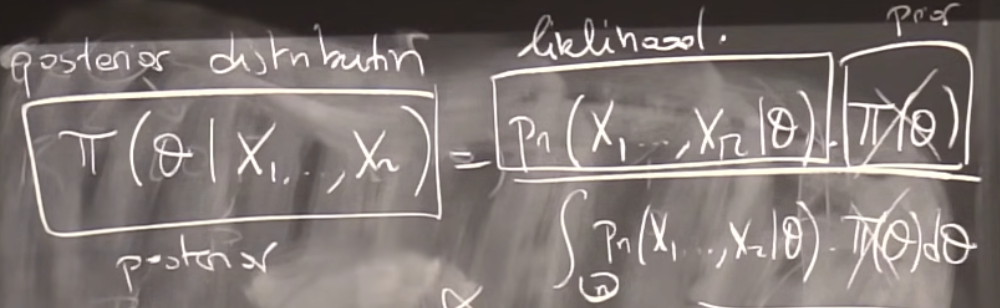 prior
posterior distribution likelihood.
π(θ|X₁...,Xₙ) = pₙ(X₁...,Xₙ|θ) · π(θ)
∫Θ pₙ(X₁...,Xₙ|θ) · π(θ)dθ
posterior
∝